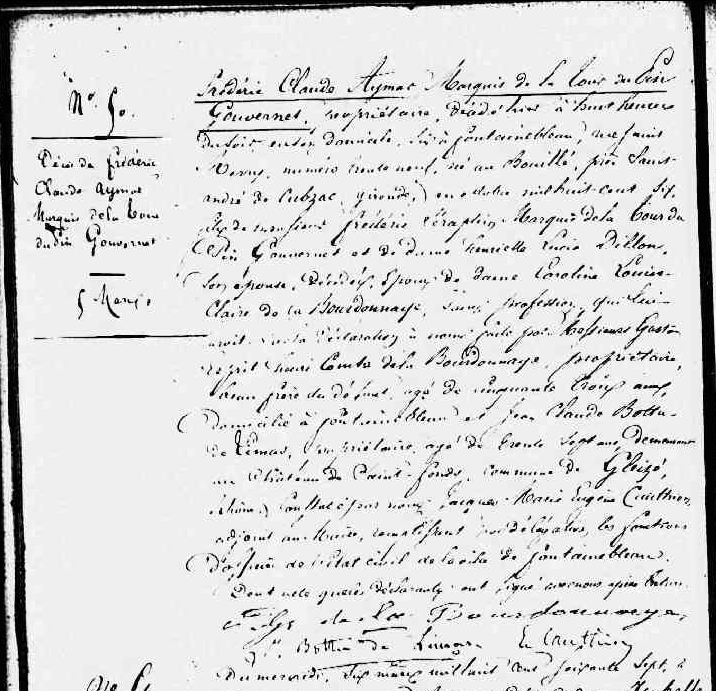 N.º 50.
Décès de frédéric
Claude Aymar
Marquis de la Tour
du Pin Gouvernet
5 Mars
Frédéric Claude Aymar Marquis de la Tour du Pin
Gouvernet, propriétaire, décédé hier à huit heures
du soir en son domicile, sis à fontainebleau, rue saint
numéro trente neuf, né au Bouilh, près Saint-
andré de Cubzac, (gironde,) en octobre mil huit cent six,
fils de monsieur frédéric Séraphin Marquis de la Tour du
Pin Gouvernet et de dame henriette Lucie Dillon,
son épouse, décédés, époux de dame Caroline Louise
Claire de la Bourdonnaye, sans profession, qui lui
sur la déclaration à nous faite par Messieurs Gaston
esprit henri Comte de la Bourdonnaye, propriétaire,
beau frère du défunt, agé de cinquante trois ans,
domicilié à fontainebleau et Jean Claude Bottu
de Limas, propriétaire, agé de trente sept ans demeurant
au château de Saint-fonds, commune de Gleizé,
(rhône.) Constaté par nous Jacques Marie Eugène
adjoint au Maire, remplissant par délégation les fonctions
d'officier de l'état civil de la ville de fontainebleau.
Dont acte que les déclarants ont signé avec nous après lecture
de la Bourdonnaye,
Bottu de Limas
Du mercredi, six mars mil huit cent soixante sept, à